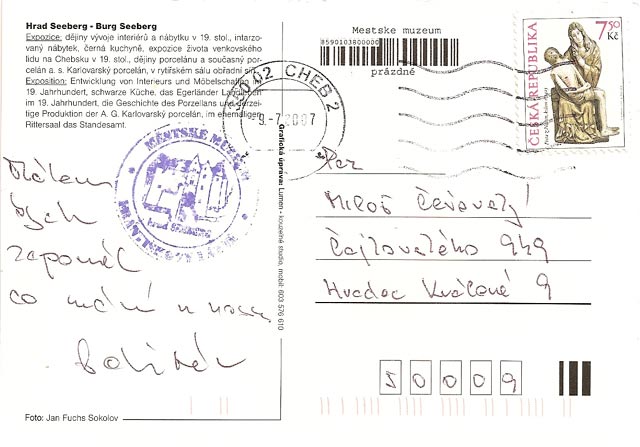 Hrad Seeberg - Burg Seeberg
Expozice: dějiny vývoje interiérů a nábytku v 19. stol., intarzo-
vaný nábytek, černá kuchyně, expozice života venkovského
lidu na Chebsku v 19. stol., dějiny porcelánu a současný por-
celán a. s. Karlovarský porcelán, v rytířském sálu obřadní síň.
Exposition: Entwicklung von Interieurs und Möbelschaffen im
19. Jahrhundert, schwarze Küche, das Egerländer Landleben
im 19. Jahrhundert, die Geschichte des Porzellans und derzei-
tige Produktion der A. G. Karlovarský porcelán; im ehemaligen
Rittersaal das Standesamt.
Mestske muzeum
8590103800000
prázdné
ČESKÁ REPUBLIKA
7,50 Kč
CHEB 2
9.-7.2007
MĚSTSKÉ MUZEUM
Hrad SEEBERG
Grafická úprava: Lumen - kouzelné studio, mobil: 603 976 610
bych
zapoměl
co
Pan
Miloš
949
Hradec Králové 9
50009
Foto: Jan Fuchs Sokolov